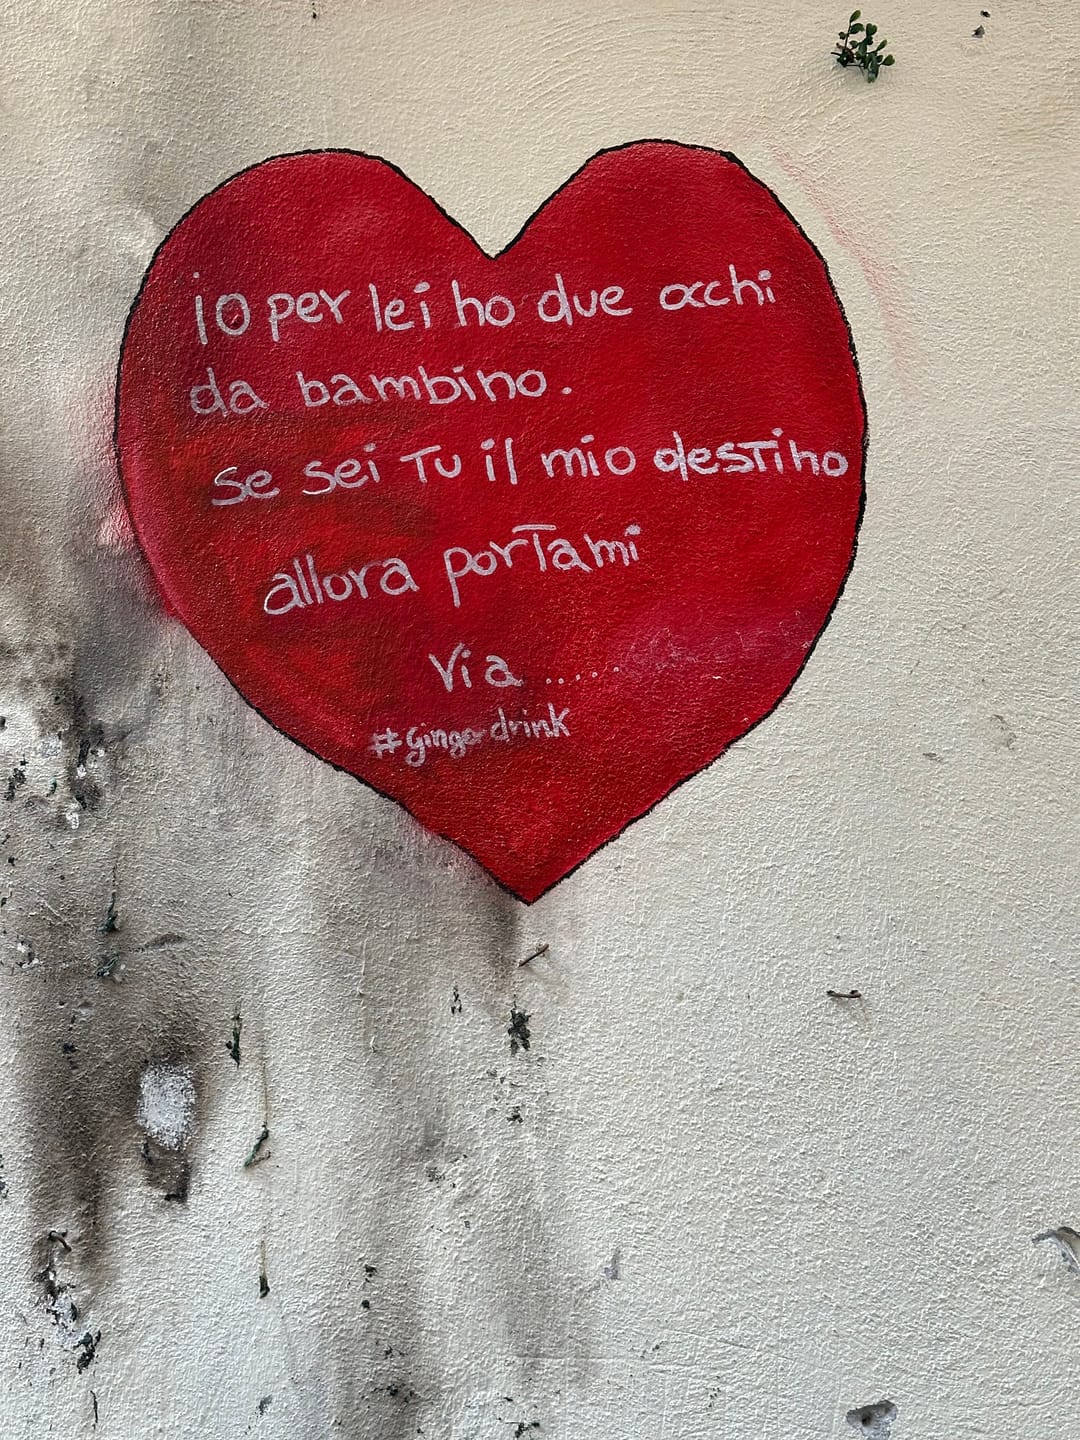 io per lei ho due occhi
da bambino.
se sei Tu il mio destino
allora portami
Via ......
#Gingerdrink